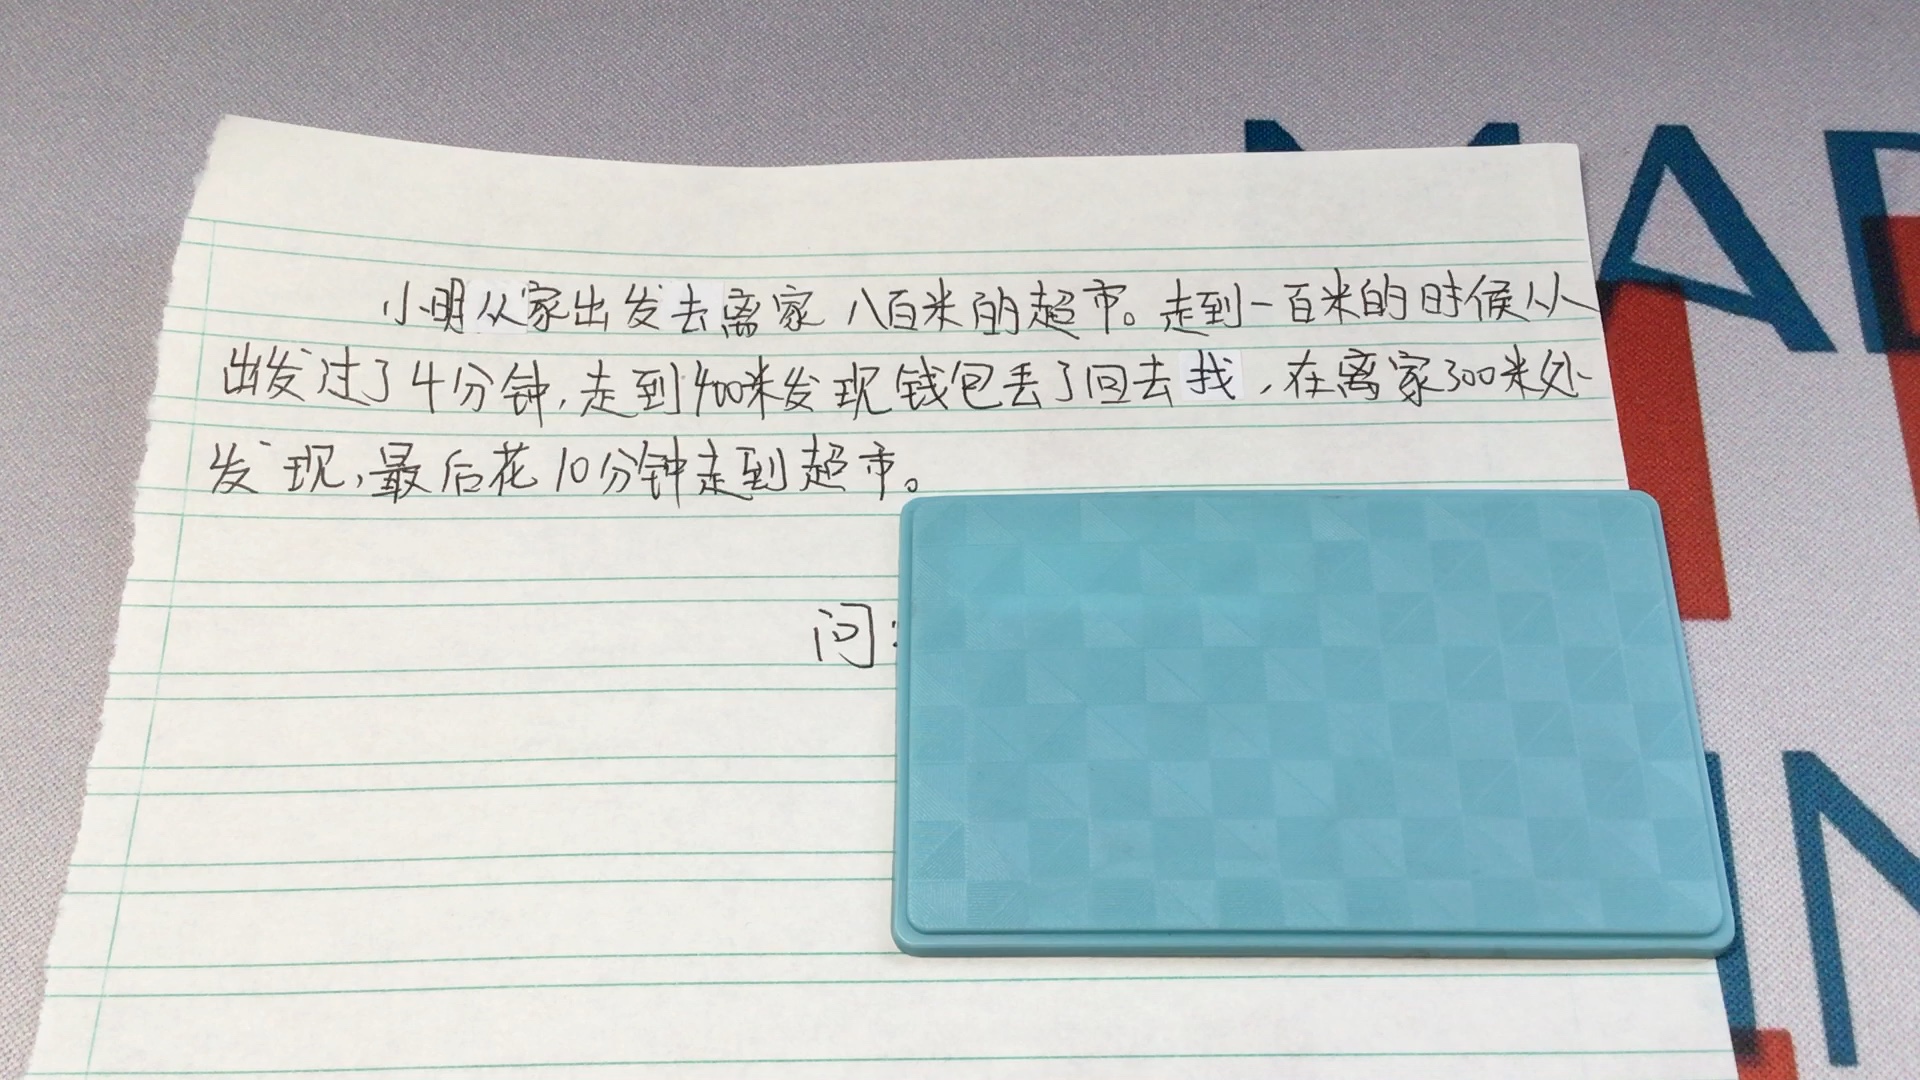 小明从家出发去离家八百米的超市。走到一百米的时候从
出发过了4分钟,走到400米发现钱包丢了回去找,在离家300米处
发现,最后花10分钟走到超市。
问: